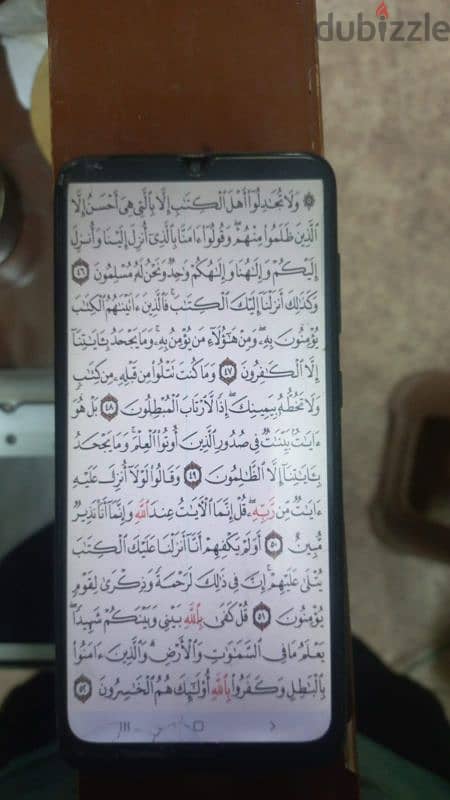 dubizzle
۞ وَلَا تُجَٰدِلُوٓا۟ أَهْلَ ٱلْكِتَٰبِ إِلَّا بِٱلَّتِى هِىَ أَحْسَنُ إِلَّا
ٱلَّذِينَ ظَلَمُوا۟ مِنْهُمْ ۖ وَقُولُوٓا۟ ءَامَنَّا بِٱلَّذِىٓ أُنزِلَ إِلَيْنَا وَأُنزِلَ
إِلَيْكُمْ وَإِلَٰهُنَا وَإِلَٰهُكُمْ وَٰحِدٌ وَنَحْنُ لَهُۥ مُسْلِمُونَ ٤٦
وَكَذَٰلِكَ أَنزَلْنَآ إِلَيْكَ ٱلْكِتَٰبَ ۚ فَٱلَّذِينَ ءَاتَيْنَٰهُمُ ٱلْكِتَٰبَ
يُؤْمِنُونَ بِهِۦ ۖ وَمِنْ هَٰٓؤُلَآءِ مَن يُؤْمِنُ بِهِۦ ۚ وَمَا يَجْحَدُ بِـَٔايَٰتِنَآ
إِلَّا ٱلْكَٰفِرُونَ ٤٧ وَمَا كُنتَ تَتْلُوا۟ مِن قَبْلِهِۦ مِن كِتَٰبٍ
وَلَا تَخُطُّهُۥ بِيَمِينِكَ ۖ إِذًا لَّٱرْتَابَ ٱلْمُبْطِلُونَ ٤٨ بَلْ هُوَ
ءَايَٰتٌۢ بَيِّنَٰتٌ فِى صُدُورِ ٱلَّذِينَ أُوتُوا۟ ٱلْعِلْمَ ۚ وَمَا يَجْحَدُ
بِـَٔايَٰتِنَآ إِلَّا ٱلظَّٰلِمُونَ ٤٩ وَقَالُوا۟ لَوْلَآ أُنزِلَ عَلَيْهِ
ءَايَٰتٌ مِّن رَّبِّهِۦ ۖ قُلْ إِنَّمَا ٱلْءَايَٰتُ عِندَ ٱللَّهِ وَإِنَّمَآ أَنَا۠ نَذِيرٌ
مُّبِينٌ ٥٠ أَوَلَمْ يَكْفِهِمْ أَنَّآ أَنزَلْنَا عَلَيْكَ ٱلْكِتَٰبَ
يُتْلَىٰ عَلَيْهِمْ ۚ إِنَّ فِى ذَٰلِكَ لَرَحْمَةً وَذِكْرَىٰ لِقَوْمٍ
يُؤْمِنُونَ ٥١ قُلْ كَفَىٰ بِٱللَّهِ بَيْنِى وَبَيْنَكُمْ شَهِيدًا ۖ
يَعْلَمُ مَا فِى ٱلسَّمَٰوَٰتِ وَٱلْأَرْضِ ۗ وَٱلَّذِينَ ءَامَنُوا۟
بِٱلْبَٰطِلِ وَكَفَرُوا۟ بِٱللَّهِ أُو۟لَٰٓئِكَ هُمُ ٱلْخَٰسِرُونَ ٥٢